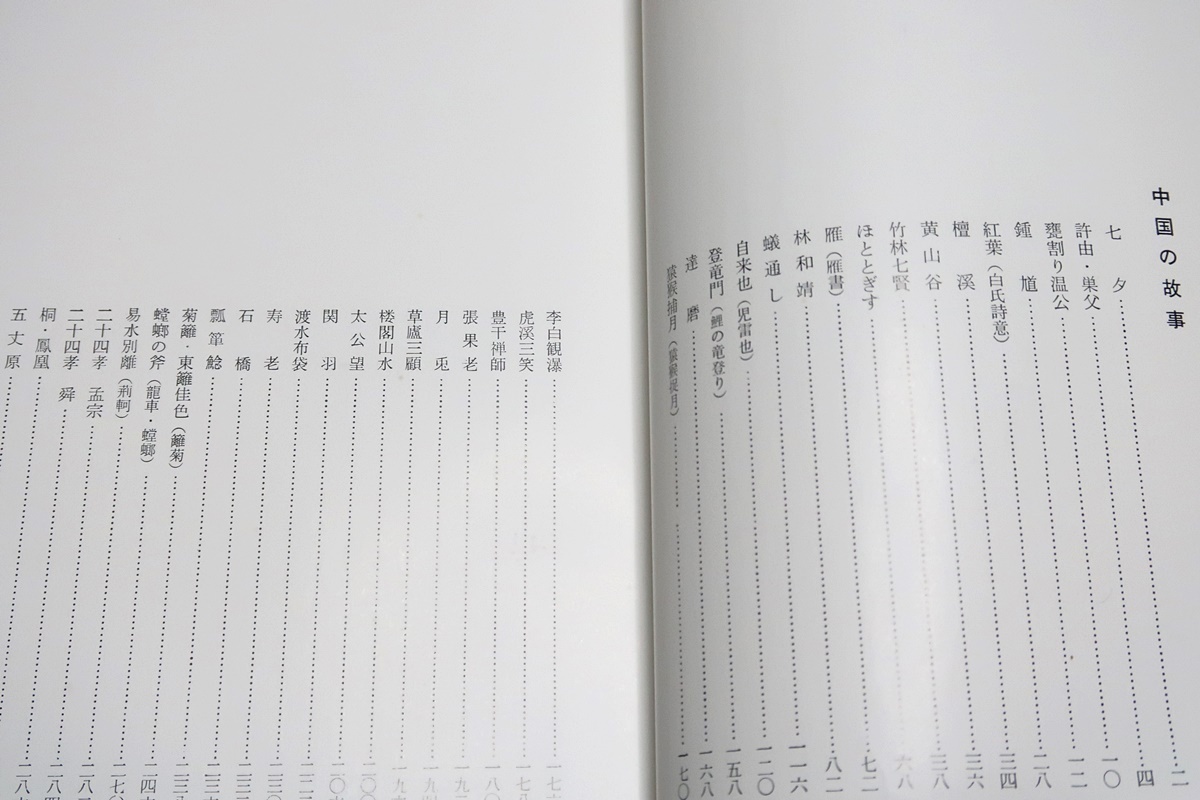 中国の故事
七夕……二
許由・巣父……四
甕割り温公……一〇
鍾馗……一二
紅葉（白氏詩意）……二八
檀溪……三四
黄山谷……三六
竹林七賢……三八
ほととぎす……六八
雁（雁書）……七二
林和靖……八二
蟻通し……一一六
自来也（児雷也）……一二〇
登竜門（鯉の竜登り）……一五八
達磨……一六八
猿猴捕月（猿猴捉月）……一七〇
李白観瀑……一七
虎溪三笑……一七
豊干禅師……一
張果老……一九
月兎……一九
草廬三顧……一九
楼閣山水
太公望……二〇
関羽……二〇
渡水布袋……二
寿老……二
石橋……二三
瓢箪鯰……二三
菊籬・東籬佳色（籬菊）……二三
螳螂の斧（龍車・螳螂）……二四
易水別離（荊軻）……二七
二十四孝 孟宗……二八
二十四孝 舜……二八
桐・鳳凰……二八
五丈原……二八